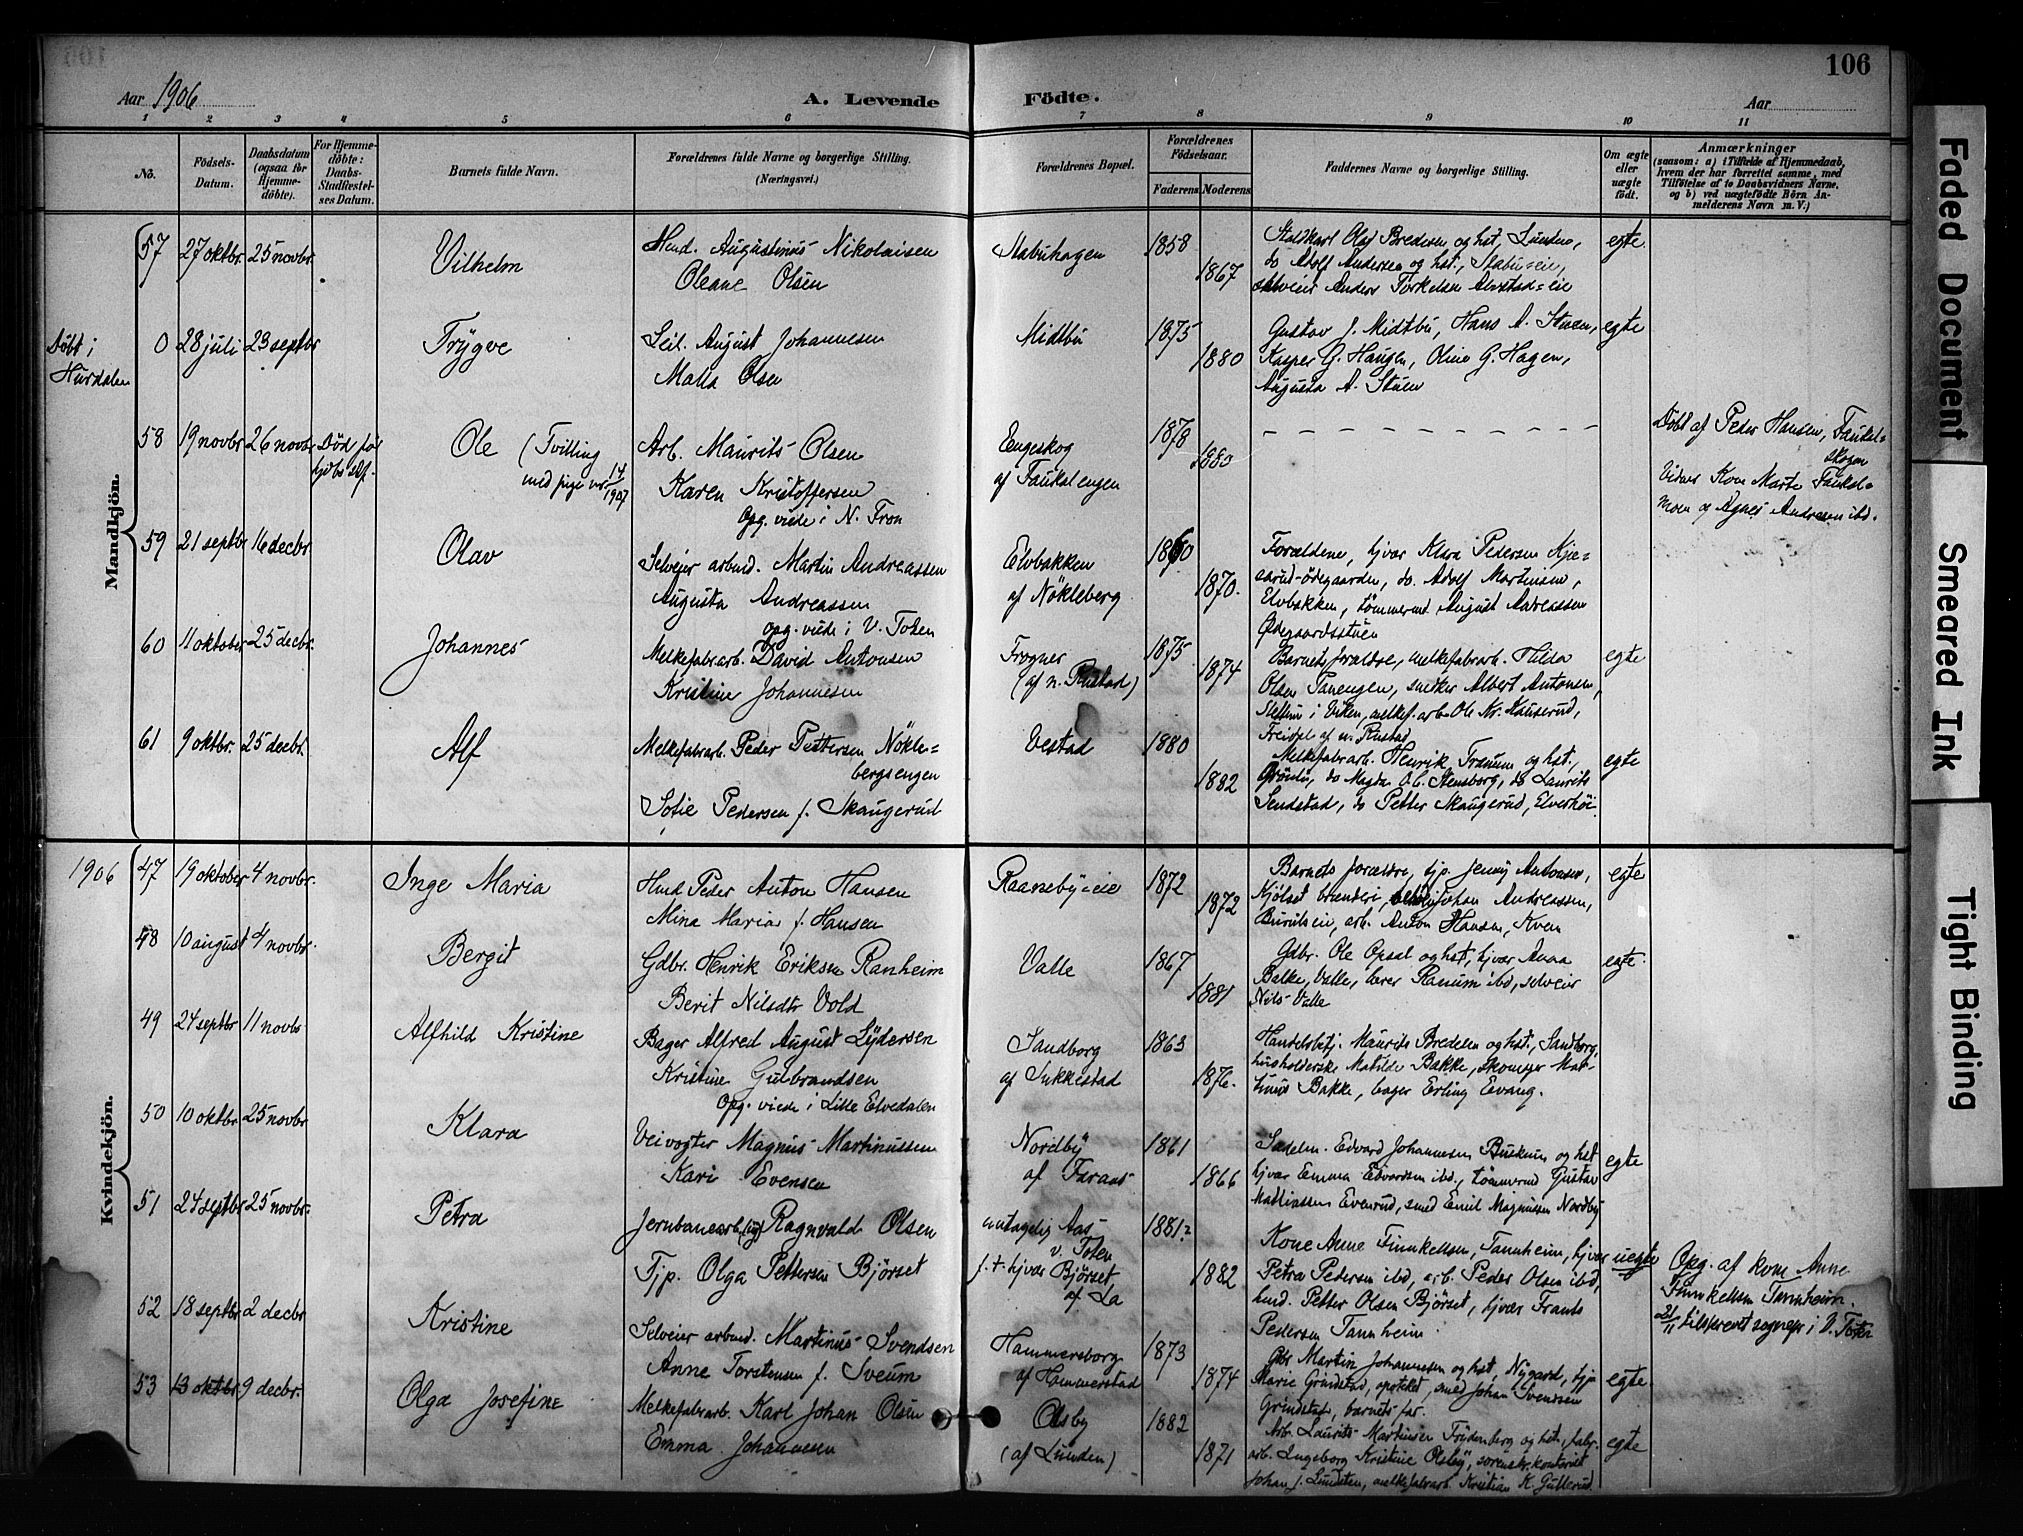 106
Aar 1906
A. Levende Födte.
Aar
1 2 3 4 5 6 7 8 9 10 11
No.
Födsels-Datum.
Daabsdatum (ogsaa for Hjemme-döbte).
For Hjemme-döbte: Daabs-Stadfæstel-ses Datum.
Barnets fulde Navn.
Forældrenes fulde Navne og borgerlige Stilling. (Næringsvei.)
Forældrenes Bopæl.
Forældrenes Födselsaar.
Faderens Moderens
Faddernes Navne og borgerlige Stilling.
Om ægte eller uægte födt.
Anmærkninger
(saasom: a) i Tilfælde af Hjemmedaab, hvem der har forrettet samme, med Tilföielse af to Daabsvidners Navne, og b) ved uægtefödte Börn An-melderens Navn m. V.)
Mandkjön.
57 27 oktbr. 25 novbr. Vilhelm
Augustinus Nikolaisen
Oleane Olsen
Stabuhagen 1858 1867
Staldkarl Olaf Bredesen og hst, Lunden,
do Adolf Andersen og hst, Stabu-eie,
Anders Torkelsen Alvstad-eie
egte
Döbt i Hurdalen
0 28 juli 23 septbr Trygve
August Johannesen
Olsen
Midtbü 1875 1880
Gustav J. Midtbü, Hans A. Stuen,
Kasper G. Haugen, Oline G. Hagen,
Augusta A. Stuen
egte
58 19 novbr 26 novbr Död
Ole (Tvilling
med pige nr 14/1907
Arb. Maurits Olsen
Karen Kristoffersen
Opg. viede i N. Fron
Engeskog
af Faukalengen
1878 1880
Döbt af Peder Hansen, Faukal=
skogen
Vidner Kone Marte Faukal=
moen og Agnes Andresen ibd.
59 21 septbr 16 decbr. Olav
Selveier arbmd. Martin Andreassen
Augusta Andreassen
opg. viede i V. Toten
Elvbakken
af Nökleberg
1860 1870.
Forældrene, tjvær Klara Pedersen
ödegaarden, do. Adolf Martinsen,
Elvbakken, tömmermd August Andreassen
Ødegaardsstuen
60 11 oktober 25 decbr. Johannes
Melkefabrarb. David Antonsen
Kristine Johannesen
Frogner
(af n. Rustad)
1875 1874
Barnets forældre, melkefabrarb. Hilda
Olsen Tanengen, snedker Albert Antonsen,
i Viken, melkef. arb. Ole Kr. Kauserud,
af n. Rustad
egte
61 9 oktbr. 25 decbr. Alf
Melkefabrarb. Peder Pettersen Nökle=
bergsengen
Sofie Pedersen f. Skaugerud
Vestad 1880 1882
Melkefabrarb. Henrik Tranum og hst.,
do Magda O.C. Stensborg, do Laurits
Sendstad, do Petter Skaugerud, Elverhöi
egte
Kvindekjön.
1906
47 19 oktober 4 novbr. Inge Maria
Hmd Peder Anton Hansen
Mina Maria f. Hansen
Raaneby-eie 1872 1872
Barnets forældre, tjp. Jenny Antonsen,
Kjölset brænderi, Johan Andreassen,
arb. Anton Hansen, Kvem
egte
48 10 august 4 novbr. Bergit
Gdbr. Henrik Eriksen Ranheim
Berit Nilsdtr Vold
Valle 1867 1881
Gdbr. Ole Opsal og hst, tjvær Anna
Balke, Valle, lærer Ranum ibd, selveier
Nils Valle
egte
49 24 septbr 11 novbr Alfhild Kristine
Bager Alfred August Lydersen
Kristine Gulbrandsen
Opg. viede i Lille Elvedalen
Sandborg
af Sukkestad
1863 1876.
Handelsbtj. Maurits Bredesen og hst, Sandborg,
husholderske Matilde Bakke, skomager Mat-
hias Bakke, bager Erling Evang.
50 10 oktbr 25 novbr Klara
Veivogter Magnus Martinussen
Kari Evensen
Nordby
af Faraas
1861 1866
Sadelm. Edvard Johannesen Buskum og hst
tjvær Emma Edvardsen ibd, tömmermd Gustav
Mathiassen Evenrud, smed Emil Magnussen Nordby
egte
51 24 septbr 25 novbr. Petra
Jernbanearb. (ug) Ragnvald Olsen
Tjp. Olga Pettersen Björset
antagelig Aas
v. Toten
f. t. tjvær Björset
af La
1881? 1882
Kone Anne Finnkelsen, Tannheim, tjvær
Petra Pedersen ibd, arb. Peder Olsen ibd,
hmd. Petter Olsen Björset, tjvær Frants
Pedersen Tannheim.
uegte
Opg. af kone Anne
Finnkelsen Tannheim.
21/11 tilskrevet sognepr i V. Toten
52 18 septbr 2 decbr Kristine
Selveier arbmd. Martinus Svendsen
Anne Torstensen f. Sveum
Hammersborg
af Hammerstad
1873 1874
Gbr Martin Johannesen og hst, Nygard, tjp
Marie Grindstad, apoteket, smed Johan Svendsen
Grindstad, barnets far.
egte
53 13 oktbr. 9 decbr. Olga Josefine
Melkefabrarb. Karl Johan Olsen
Emma Johannesen
Olsby
(af Lunden)
1882 1871
Arb. Laurits Martinsen Frydenberg og hst, fabr.
arb. Ingeborg Kristine Olsby, sorenskr. kontorist
Johan J. Lundsten, melkefabrarb. Kristian K. Gullerud
egte
Faded Document
Smeared Ink
Tight Binding